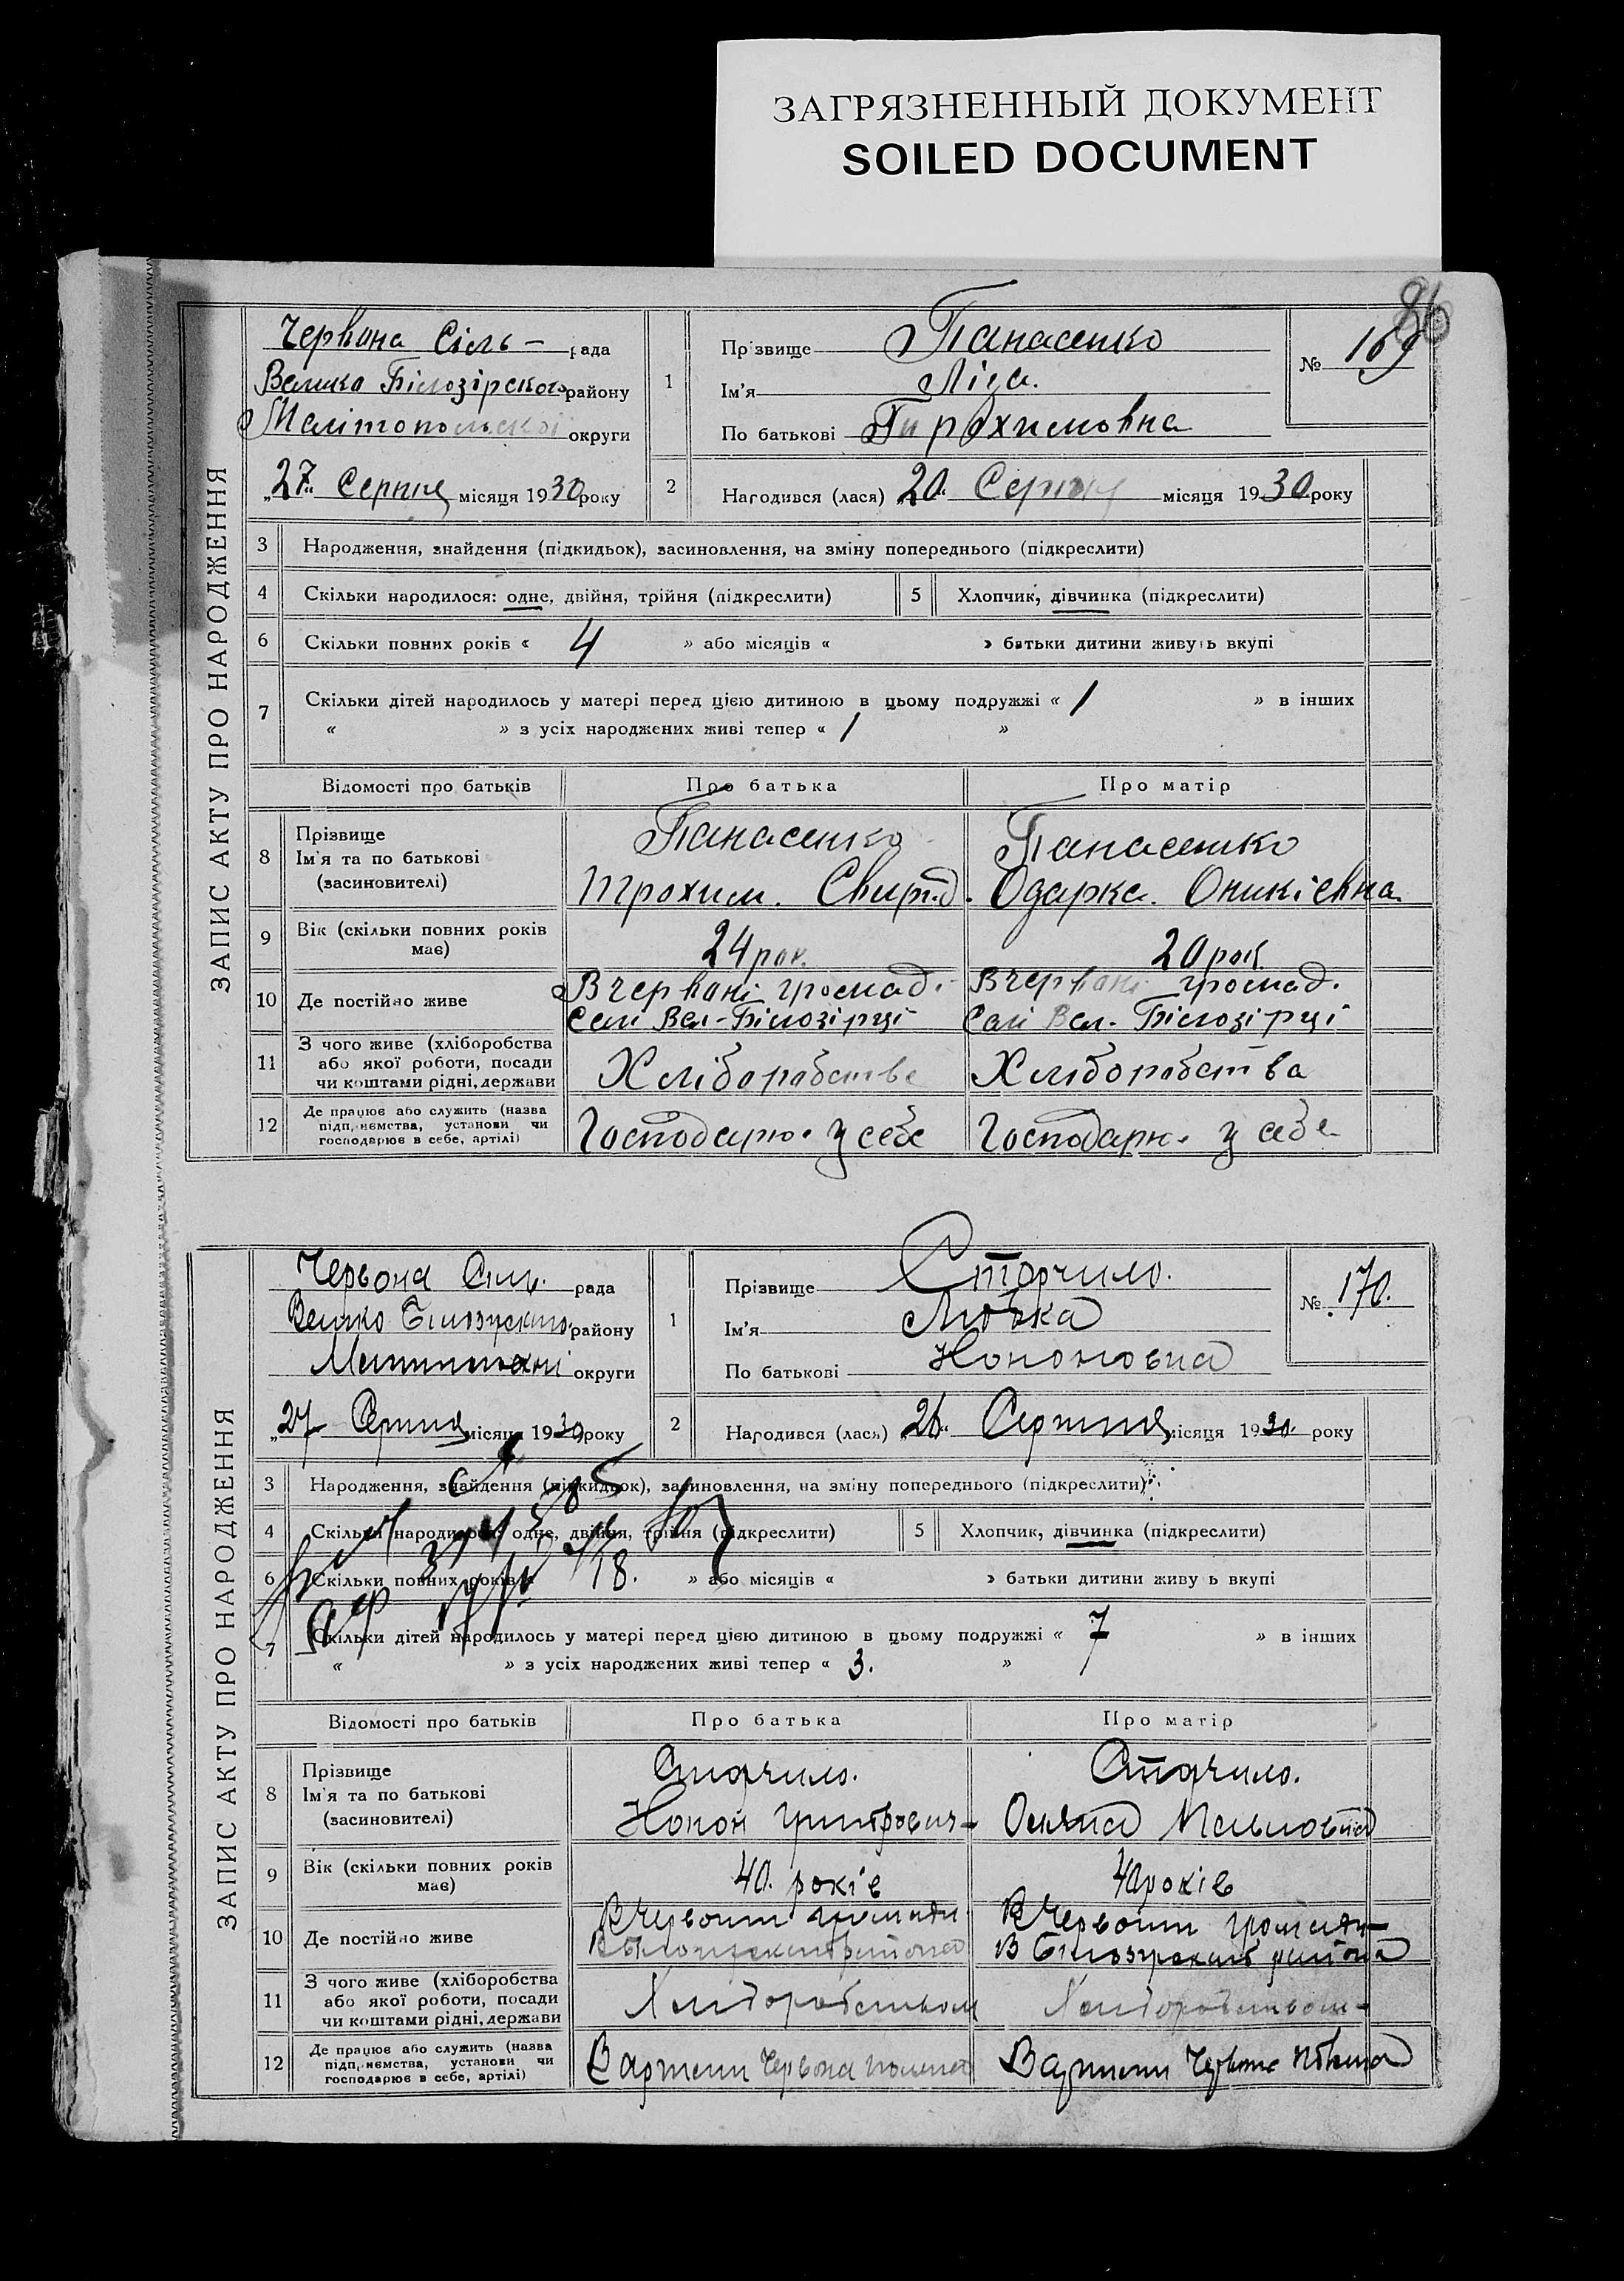 ЗАГРЯЗНЕННЫЙ ДОКУМЕНТ
SOILED DOCUMENT
86
ЗАПИС АКТУ ПРО НАРОДЖЕННЯ
Червона Сіль - рада
Велико Білозірского району
Мелітопольскої округи
„27" Серпня місяця 1930 року
1
Прізвище Панасенко
Ім'я Ліза.
По батькові Трохимовна
№ 169
2
Народився (лася) 20" Серпня місяця 1930 року
3 Народження, знайдення (підкидьок), засиновлення, на зміну попереднього (підкреслити)
4 Скільки народилося: одне, двійня, трійня (підкреслити) 5 Хлопчик, дівчинка (підкреслити)
6 Скільки повних років « 4 » або місяців « » батьки дитини живуть вкупі
7 Скільки дітей народилось у матері перед цією дитиною в цьому подружжі « 1 » в інших
« » з усіх народжених живі тепер « 1 »
Відомості про батьків Про батька Про матір
8 Прізвище
Ім'я та по батькові
(засиновителі)
Панасенко
Трохим. Свирид.
Панасенко
Одарка. Оникієвна
9 Вік (скільки повних років
має)
24 рок.
20 рок
10 Де постійно живе
В червоні громад.
Селі Вел-Білозірці
В червоні громад.
Селі Вел-Білозірці
11 З чого живе (хліборобства
або якої роботи, посади
чи коштами рідні, держави
Хліборобства
Хліборобства
12 Де працює або служить (назва
підприємства, установи чи
господарює в себе, артілі)
Господарю. у себе
Господарю. у себе
ЗАПИС АКТУ ПРО НАРОДЖЕННЯ
Червона Сіль. рада
Велико Білозірського району
округи
„27 Серпня місяця 1930 року
1
Прізвище Сторчило.
Ім'я Любка
По батькові Нононовна
№ 170.
2
Народився (лася) 26" Серпня місяця 1930 року
3 Народження, знайдення (підкидьок), засиновлення, на зміну попереднього (підкреслити)
4 Скільки народилося: одне, двійня, трійня (підкреслити) 5 Хлопчик, дівчинка (підкреслити)
6 Скільки повних років « 18. » або місяців « » батьки дитини живу ь вкупі
7 Скільки дітей народилось у матері перед цією дитиною в цьому подружжі « 7 » в інших
« » з усіх народжених живі тепер « 3. »
Відомості про батьків Про батька Про матір
8 Прізвище
Ім'я та по батькові
(засиновителі)
Сторчило.
Нонон
Сторчило.
9 Вік (скільки повних років
має)
40. років
40 років
10 Де постійно живе
В Червоній громади
В Червоній громади
В Білозірскиб района
11 З чого живе (хліборобства
або якої роботи, посади
чи коштами рідні, держави
Хліборобством
Хліборобством
12 Де працює або служить (назва
підприємства, установи чи
господарює в себе, артілі)
В артели Червона
В артели Червона